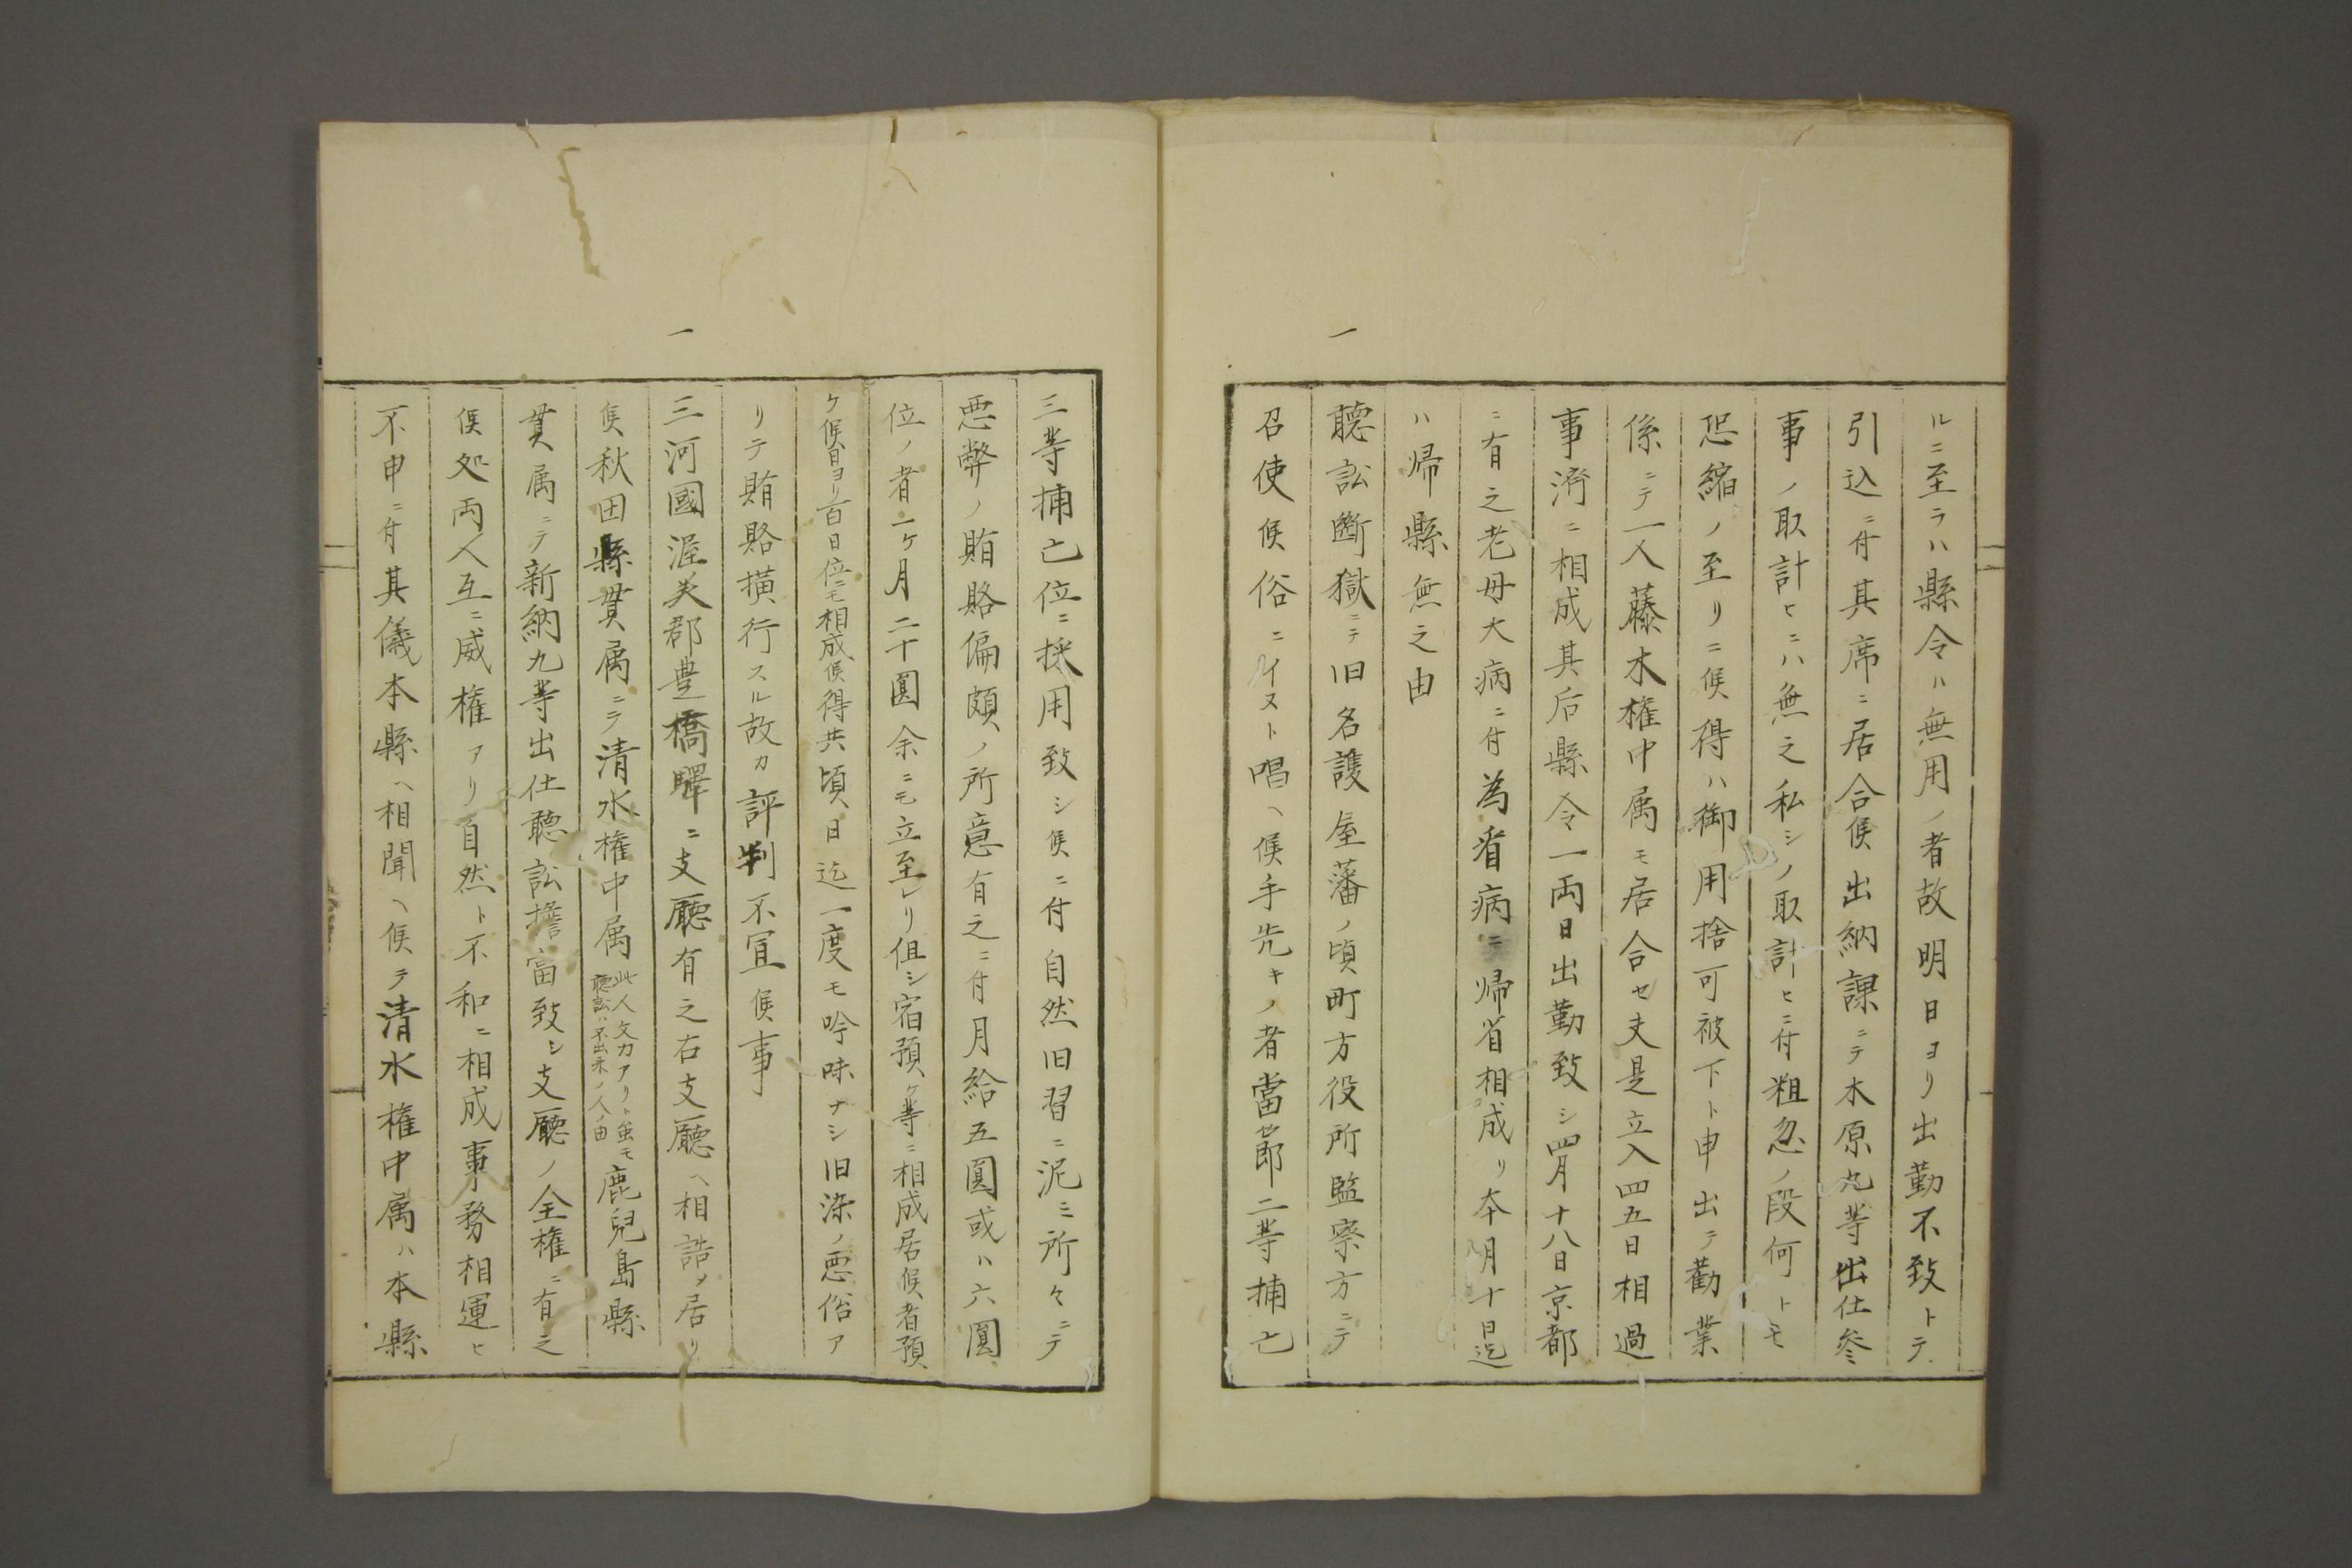 ルニ至ラハ縣令ハ無用ノ者故明日ヨリ出勤不致トテ
引込ニ付其席ニ居合候出納課ニテ木原九等出仕参
事ノ取計ヒニハ無之私シノ取計ヒニ付粗忽ノ段何トモ
恐縮ノ至リニ候得ハ御用捨可被下ト申出テ勸業
係ニテ一人藤木権中属モ居合セ夫是立入四五日相過
事濟ニ相成其后縣令一両日出勤致シ四月十八日京都
ニ有之老母大病ニ付為看病ニ帰省相成リ本月十日迄
ハ帰縣無之由
一
聽訟斷獄ニテ旧名護屋藩ノ頃町方役所監察方ニテ
召使候俗ニイヌト唱ヘ候手先キノ者當節二等捕亡
三等捕亡位ニ採用致シ候ニ付自然旧習ニ泥ミ所々ニテ
悪弊ノ賄賂偏頗ノ所意有之ニ付月給五圓或ハ六圓
位ノ者一ケ月二十圓余ニモ立至レリ但シ宿預ケ等ニ相成居候者預
ケ候日ヨリ百日位ニモ相成候得共頃日迄一度モ吟味ナシ旧染ノ悪俗ア
リテ賄賂横行スル故カ評判不宜候事
一
三河國渥美郡豊橋驛ニ支廳有之右支廳ヘ相詰メ居リ
候秋田縣貫属ニテ清水権中属此人文力アリト虽モ聽訟ハ不出来ノ人ノ由鹿兒島縣
貫属ニテ新納九等出仕聽訟擔當致シ支廳ノ全権ニ有之
候処両人互ニ威権アリ自然ト不和ニ相成事務相運ヒ
不申ニ付其儀本縣ヘ相聞ヘ候テ清水権中属ハ本縣